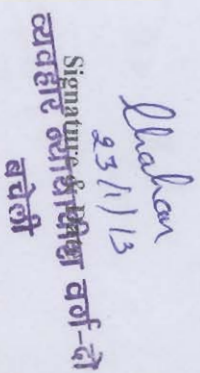 23/1/13
Signature &
व्यवहार न्यायाधीश वर्ग-दो
बचेली